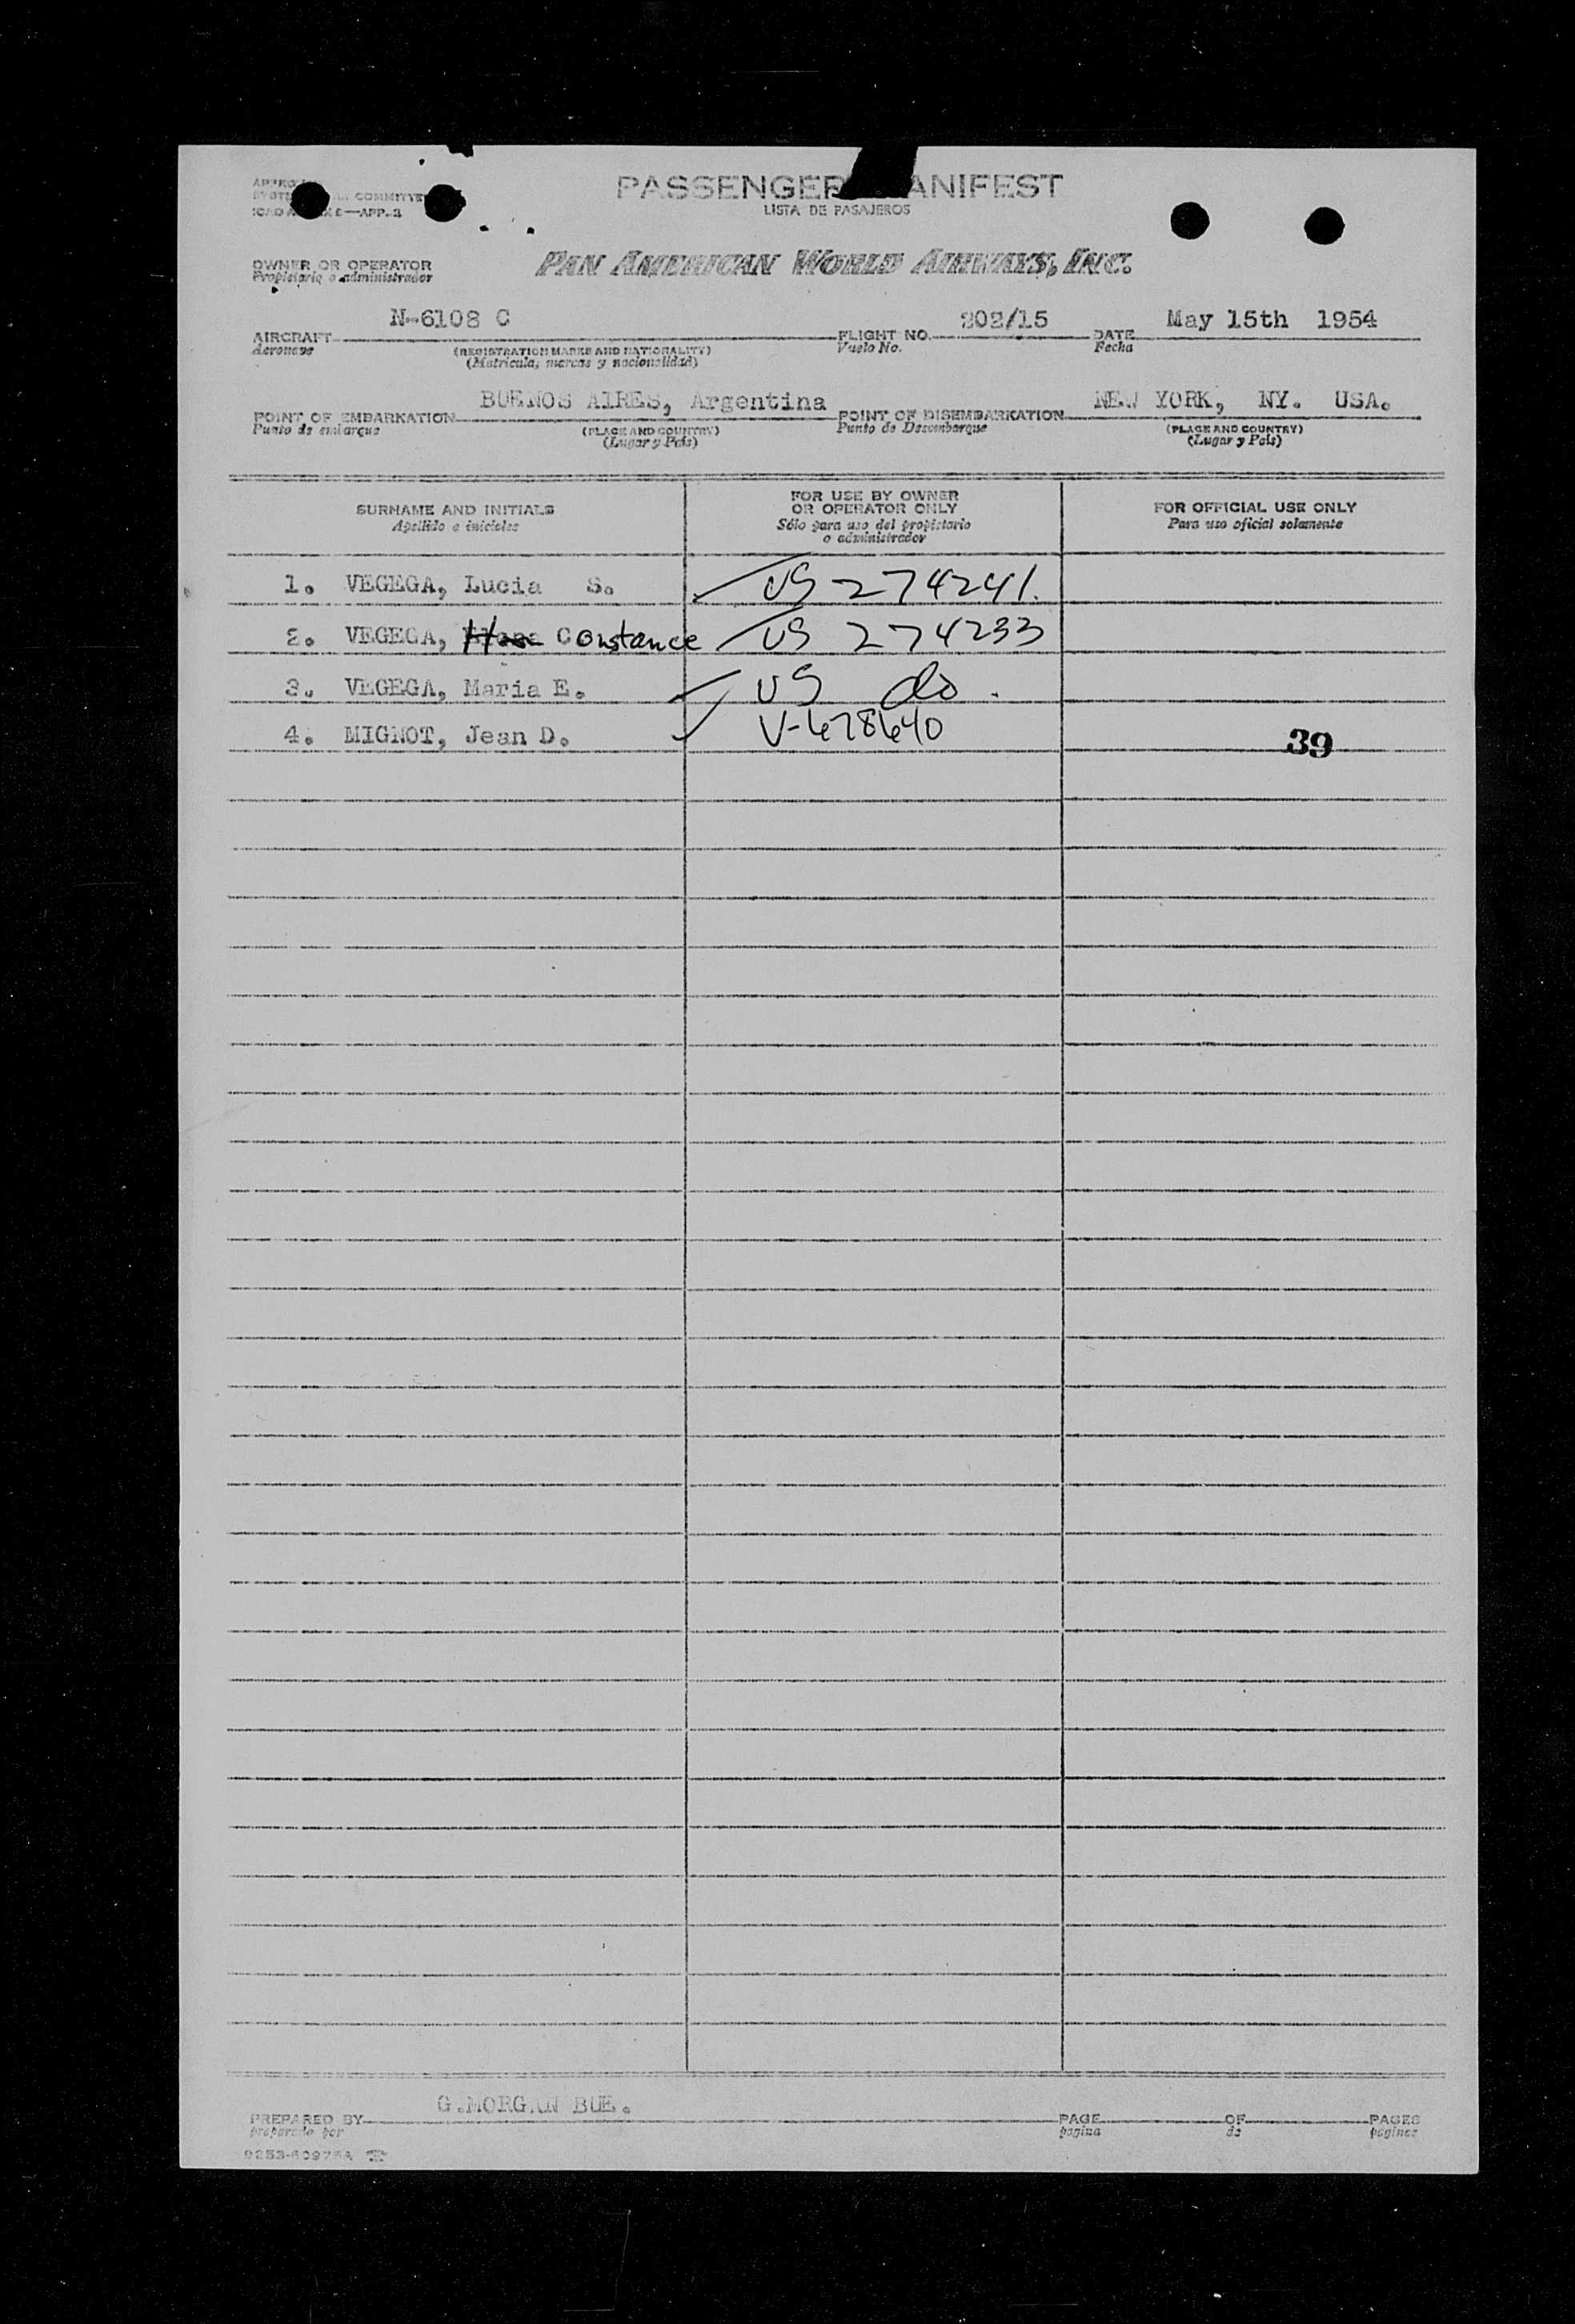 PASSENGER MANIFEST
LISTA DE PASAJEROS
COMMITTEE
APP. 2
OWNER OR OPERATOR
Propietario o administrador
PAN AMERICAN WORLD AIRWAYS, INC.
AIRCRAFT N-6108 C FLIGHT NO. 202/15 DATE May 15th 1954
Aeronave (REGISTRATION MARKS AND NATIONALITY) Vuelo No. Fecha
(Matricula, marcas y nacionalidad)
POINT OF EMBARKATION BUENOS AIRES, Argentina POINT OF DISEMBARKATION NEW YORK, NY. USA.
Punto de embarque (PLACE AND COUNTRY) Punto de Desembarque (PLACE AND COUNTRY)
(Lugar y País) (Lugar y País)
SURNAME AND INITIALS FOR USE BY OWNER OR OPERATOR ONLY FOR OFFICIAL USE ONLY
Apellido e iniciales Sólo para uso del propietario o administrador Para uso oficial solamente
1. VEGEGA, Lucia S. US 274241.
2. VEGEGA, Constance US 274233
3. VEGEGA, Maria E. US do.
4. MIGNOT, Jean D. V-678640
39
PREPARED BY G.MORGAN BUE. PAGE OF PAGES
preparado por pagina de paginas